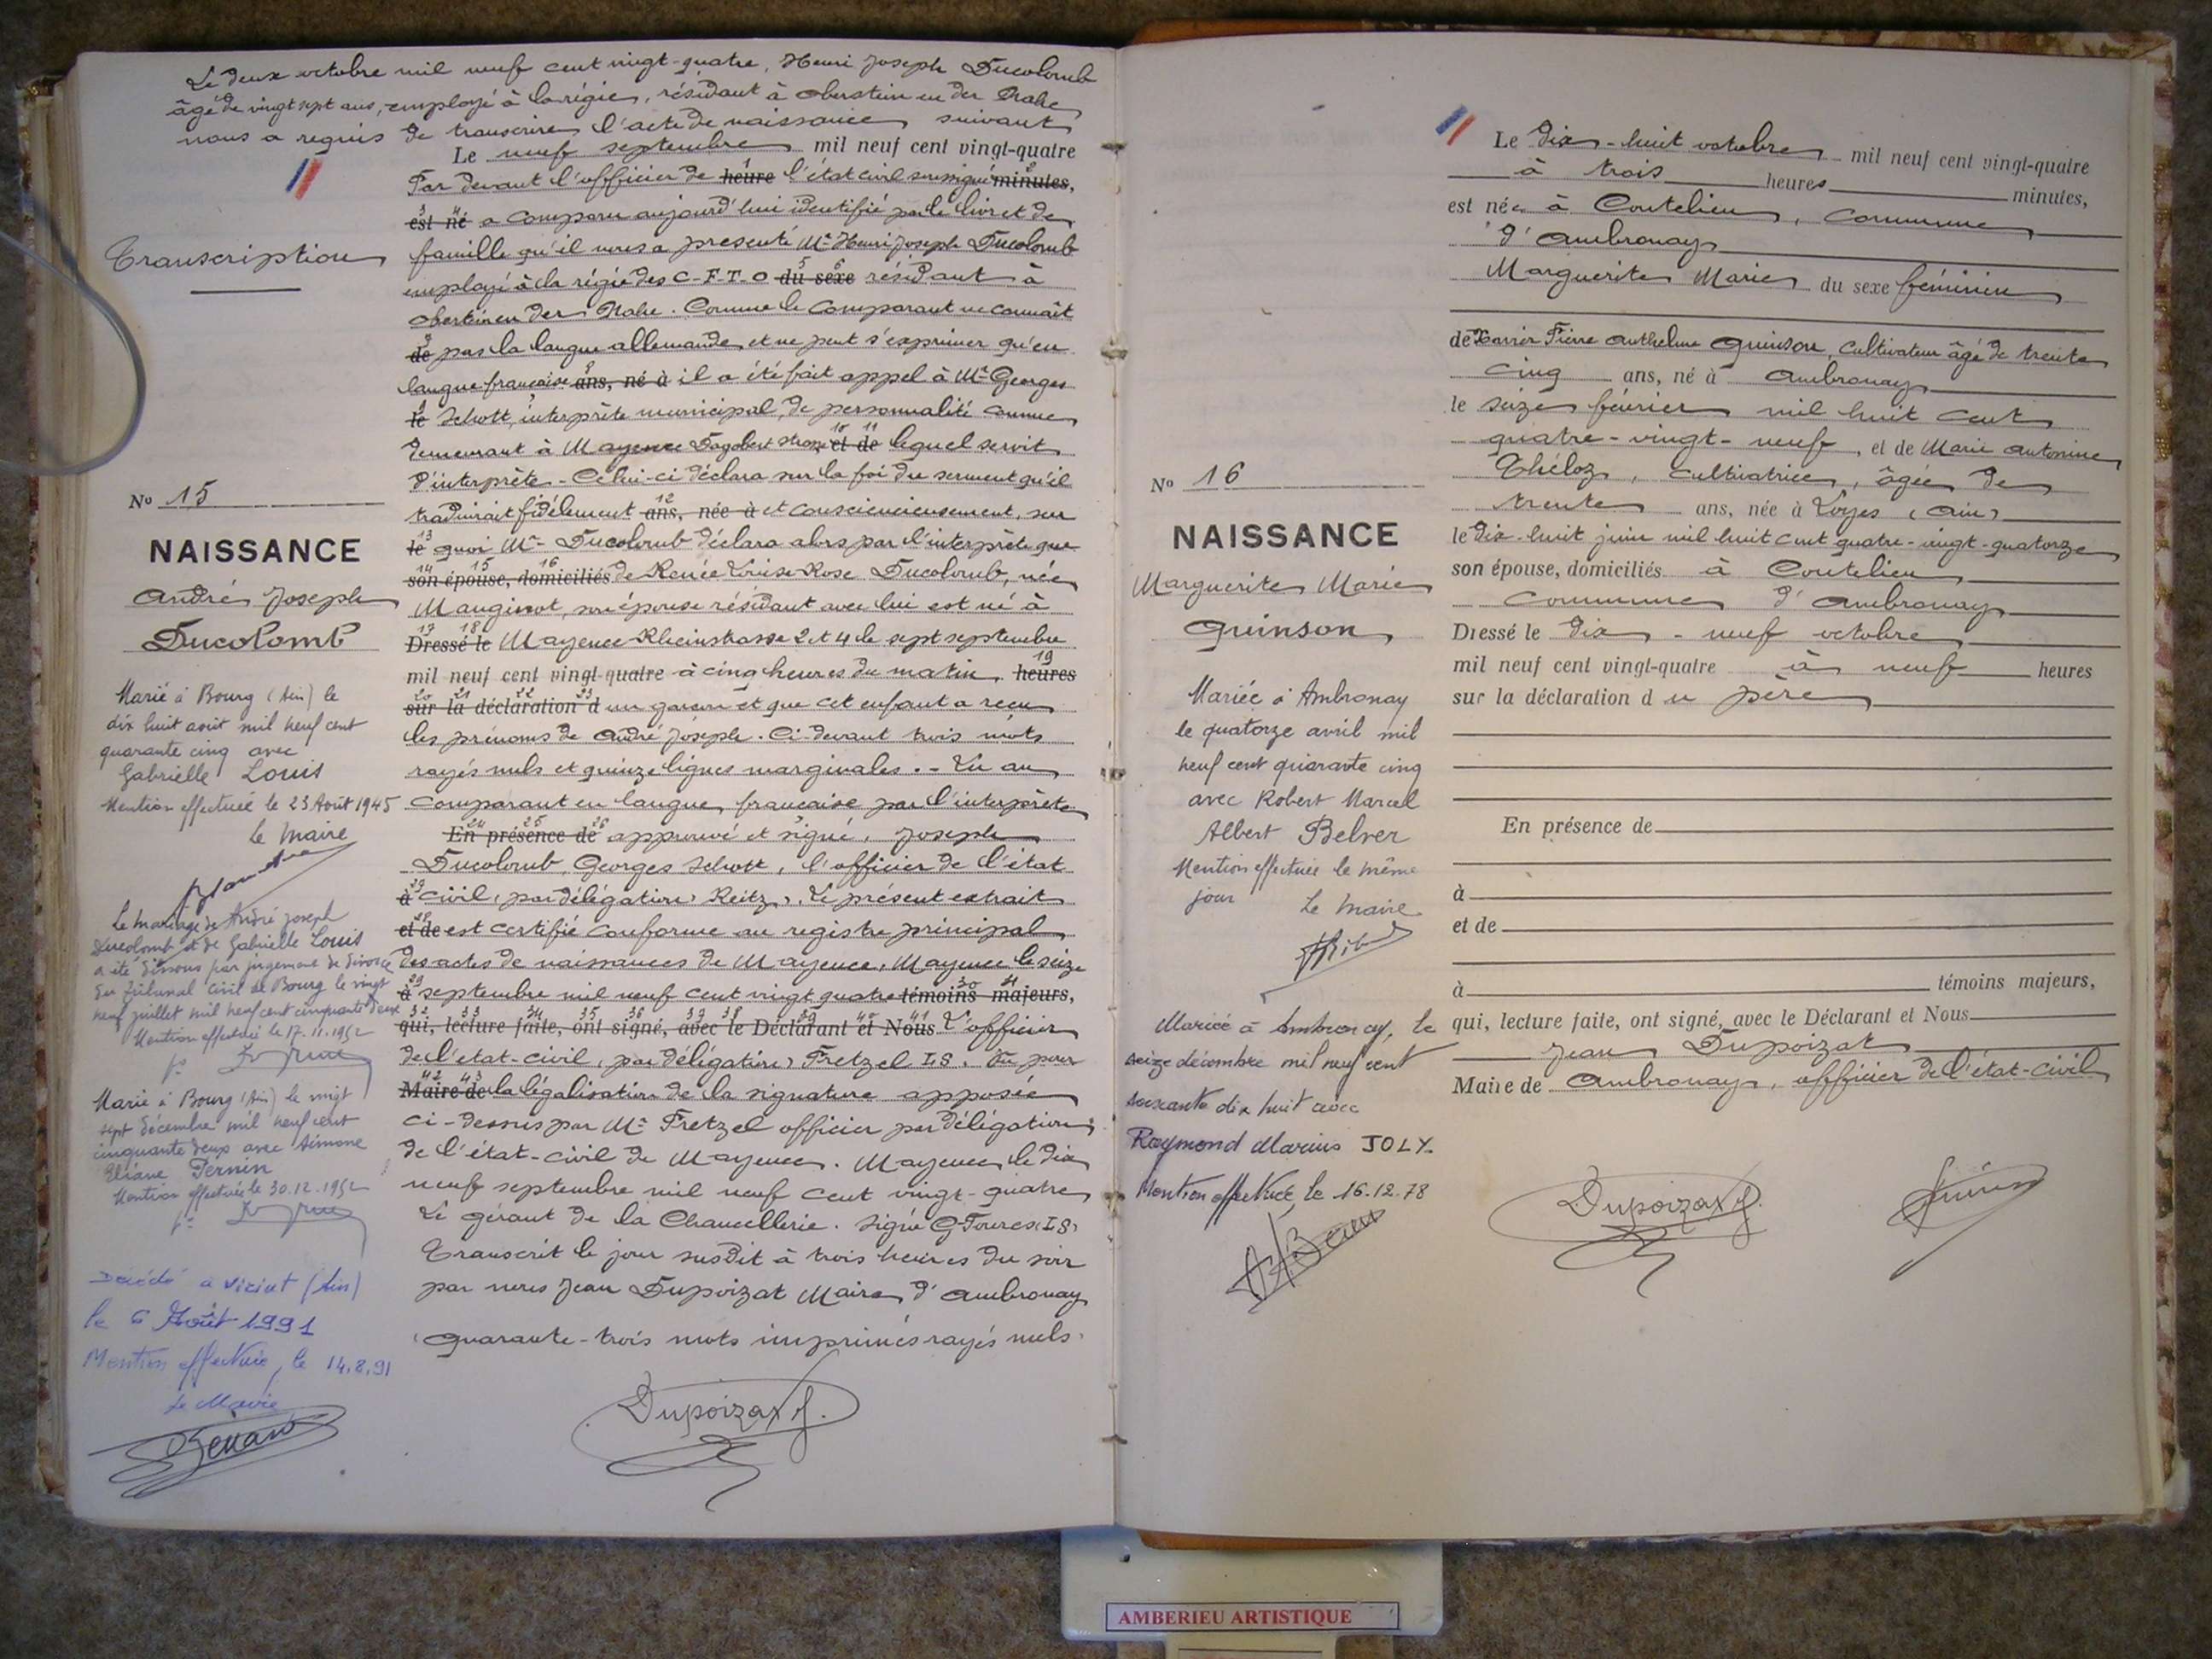 Le deux octobre mil neuf cent vingt-quatre, Henri Joseph Ducolomb
âgé de vingt sept ans, employé à la régie, résidant à Oberstein en der Nahe
nous a requis de transcrire l'acte de naissance suivant
Le neuf septembre mil neuf cent vingt-quatre
Par devant l'officier de heure l'état civil soussigné minutes,
est né a comparu aujourd'hui identifié par le livret de
Transcription
famille qu'il nous a présenté Mr Henri Joseph Ducolomb
employé à la régie des C-F-T-O du sexe résidant à
Oberstein en der Nahe. Comme le comparant ne connaît
de pas la langue allemande et ne peut s'exprimer qu'en
langue française ans, né à il a été fait appel à Mr Georges
le Schott, interprète municipal, de personnalité connue
demeurant à Mayence Dagobert strasse et de lequel servit
d'interprète - Celui-ci déclara sur la foi du serment qu'il
traduirait fidèlement ans, née à et consciencieusement, sur
le quoi Mr Ducolomb déclara alors par l'interprète que
son épouse, domiciliés de Renée Louise Rose Ducolomb, née
Mauginot, son épouse résidant avec lui est né à
Dressé le Mayence Rheinstrasse 2 et 4 le sept septembre
mil neuf cent vingt-quatre à cinq heures du matin, heures
sur la déclaration d un garçon et que cet enfant a reçu
les prénoms de André Joseph. Ci-devant trois mots
rayés nuls et quinze lignes marginales. - Lu au
comparant en langue française par l'interprète
En présence de approuvé et signé, Joseph
Ducolomb, Georges Schott, l'officier de l'état
à civil (par délégation) Reitz. Le présent extrait
et de est certifié conforme au registre principal
des actes de naissances de Mayence. Mayence le seize
à septembre mil neuf cent vingt quatre témoins majeurs,
qui, lecture faite, ont signé, avec le Déclarant et Nous L'officier
de l'état-civil (par délégation) Fretzel LS. Vu pour
Maire de la légalisation de la signature apposée
ci-dessus par Mr Fretzel officier par délégation
de l'état-civil de Mayence. Mayence le dix
neuf septembre mil neuf cent vingt-quatre
Le gérant de la Chancellerie. Signé G. (LS)
Transcrit le jour susdit à trois heures du soir
par nous Jean Dupoizat Maire d'Ambronay
Quarante-trois mots imprimés rayés nuls.
Dupoizat J.
No 15
NAISSANCE
André Joseph
Ducolomb
Marié à Bourg (Ain) le
dix huit août mil neuf cent
quarante cinq avec
Gabrielle Louis
Mention effectuée le 23 Août 1945
le Maire
Le mariage de André Joseph
Ducolomb et de Gabrielle Louis
a été dissous par jugement de divorce
du tribunal civil de Bourg le vingt
neuf juillet mil neuf cent cinquante deux
Mention effectuée le 17.11.1952
Marié à Bourg (Ain) le vingt
sept décembre mil neuf cent
cinquante deux avec Simone
Eliane Pernin
Mention effectuée le 30.12.1952
Décédé à Viriat (Ain)
le 6 Août 1991
Mention effectuée, le 14.8.91
Le Maire
Le dix-huit octobre mil neuf cent vingt-quatre
à trois heures minutes,
est née à Coutelieu, commune
d'Ambronay
Marguerite Marie du sexe féminin
de Xavier Pierre Anthelme Quinson, cultivateur âgé de trente
cinq ans, né à Ambronay
le seize février mil huit cent
quatre-vingt-neuf, et de Marie Antonine
Théloz, cultivatrice, âgée de
trente ans, née à Loyes (Ain)
le dix-huit juin mil huit cent quatre-vingt-quatorze
son épouse, domiciliés à Coutelieu
commune d'Ambronay
Dressé le dix-neuf octobre
mil neuf cent vingt-quatre à neuf heures
sur la déclaration d u père
En présence de
à
et de
à témoins majeurs,
qui, lecture faite, ont signé, avec le Déclarant et Nous
Jean Dupoizat
Maire de Ambronay, officier de l'état-civil
Dupoizat J. Quinson
No 16
NAISSANCE
Marguerite Marie
Quinson
Mariée à Ambronay
le quatorze avril mil
neuf cent quarante cinq
avec Robert Marcel
Albert Belver
Mention effectuée le même
jour Le Maire
Mariée à Ambronay, le
seize décembre mil neuf cent
soixante dix huit avec
Raymond Marius JOLY.
Mention effectuée, le 16.12.78
AMBERIEU ARTISTIQUE